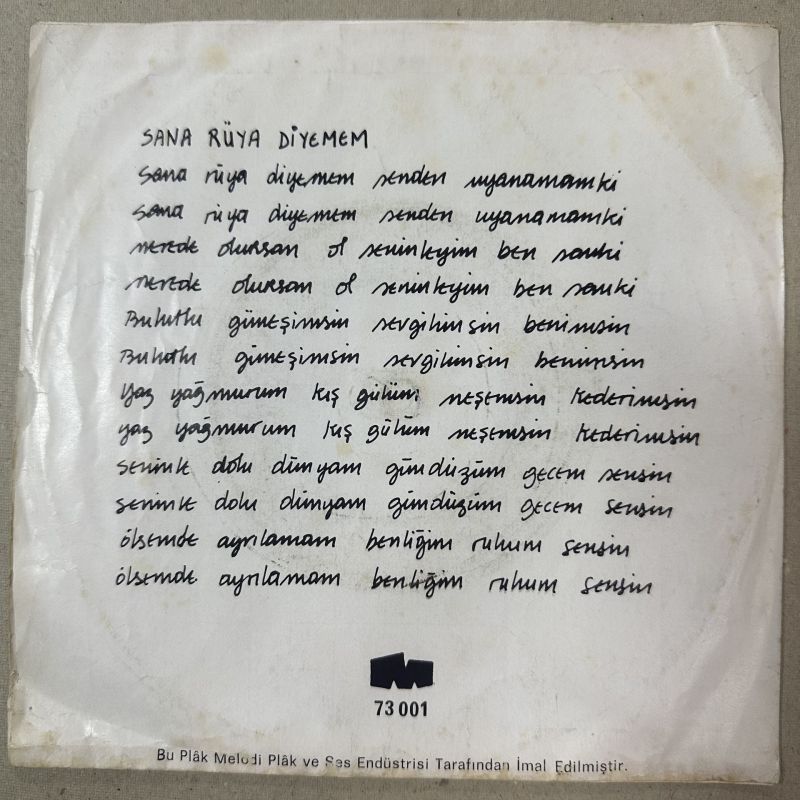 SANA RÜYA DİYEMEM
Sana rüya diyemem senden uyanamamki
sana rüya diyemem senden uyanamamki
nerede olursan ol seninleyim ben sanki
nerede olursan ol seninleyim ben sanki
Bulutlu güneşimsin sevgilimsin benimsin
Bulutlu güneşimsin sevgilimsin benimsin
yaz yağmurum kış gülüm neşemsin kederimsin
yaz yağmurum kış gülüm neşemsin kederimsin
seninle dolu dünyam gündüzüm gecem sensin
seninle dolu dünyam gündüzüm gecem sensin
ölsemde ayrılamam benliğim ruhum sensin
ölsemde ayrılamam benliğim ruhum sensin
73 001
Bu Plâk Melodi Plâk ve Ses Endüstrisi Tarafından İmal Edilmiştir.